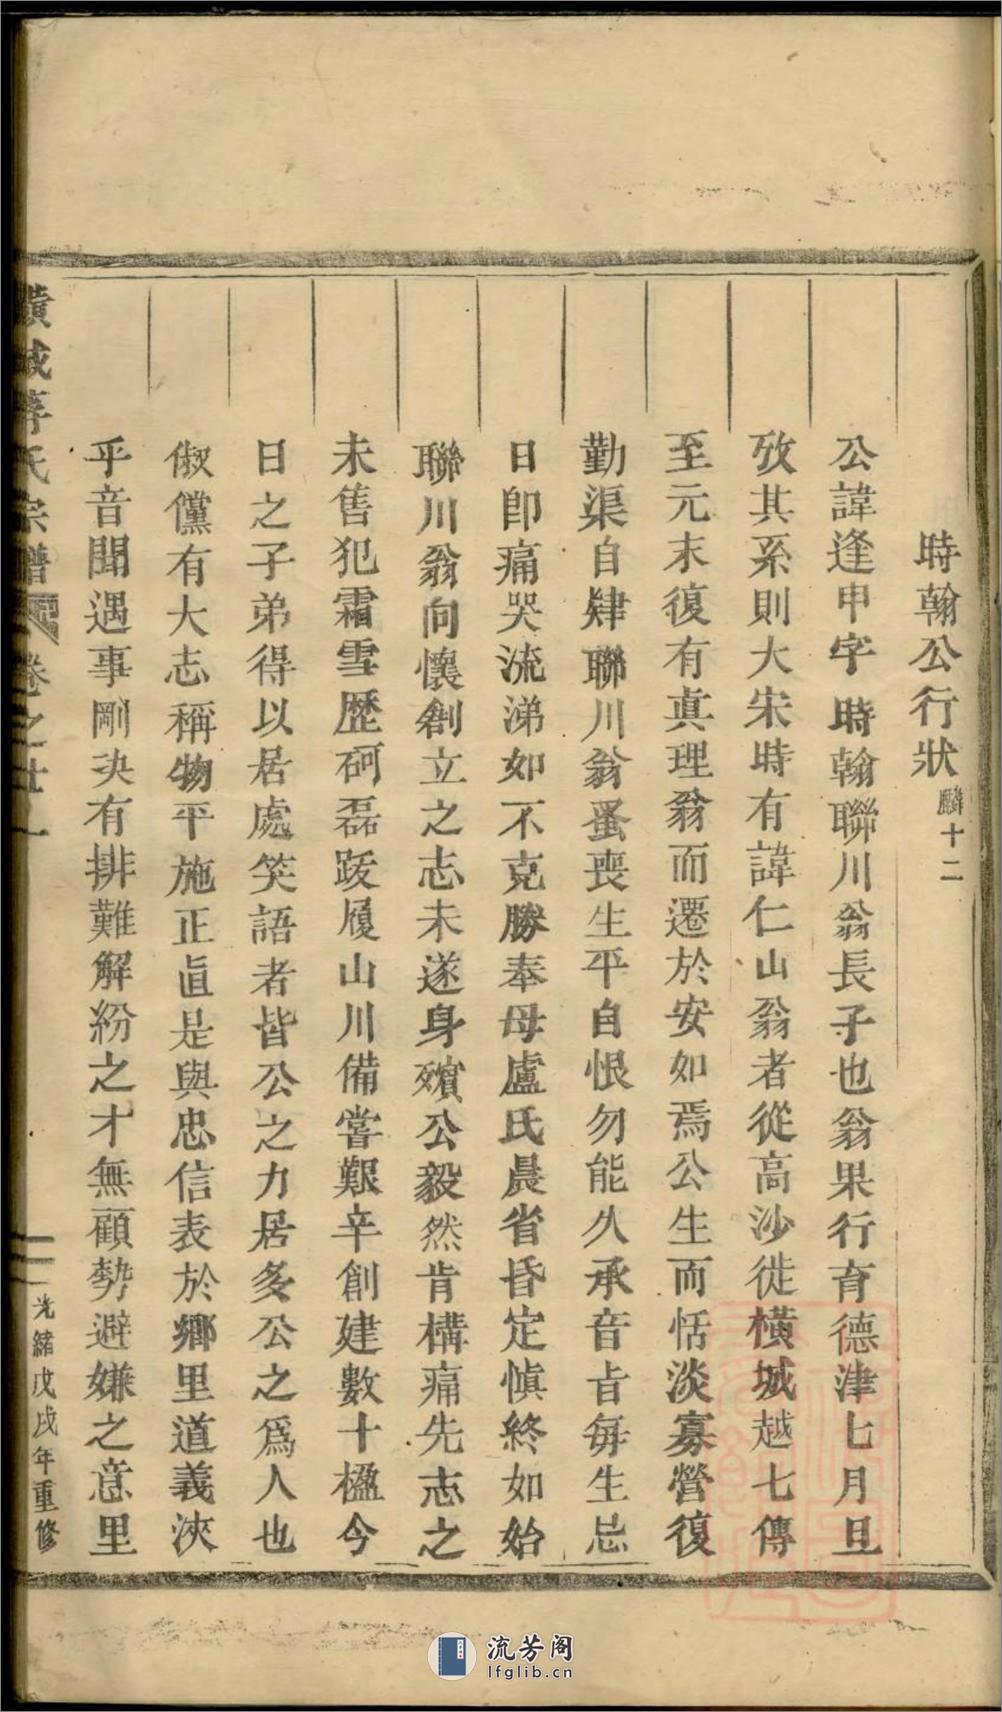 時翰公行狀 麟十二
公諱逢申字時翰聯川翁長子也翁果行育德津七月旦
攷其系則大宋時有諱仁山翁者從高沙徙橫城越七傳
至元末復有眞理翁而遷於安如焉公生而恬淡寡營復
勤渠自肄聯川翁蚤喪生平自恨勿能久承音旨每生忌
日卽痛哭流涕如不克勝奉母盧氏晨省昏定愼終如始
聯川翁向懷創立之志未遂身殯公毅然肯構痛先志之
未售犯霜雪歷砢磊跋履山川備嘗艱辛創建數十楹今
日之子弟得以居處笑語者皆公之力居多公之爲人也
俶儻有大志稱物平施正直是與忠信表於鄉里道義浹
乎音聞遇事剛决有排難解紛之才無顧勢避嫌之意里
橫城李氏宗譜 卷之廿一
光緖戊戌年重修
流芳阁
lfglib.cn